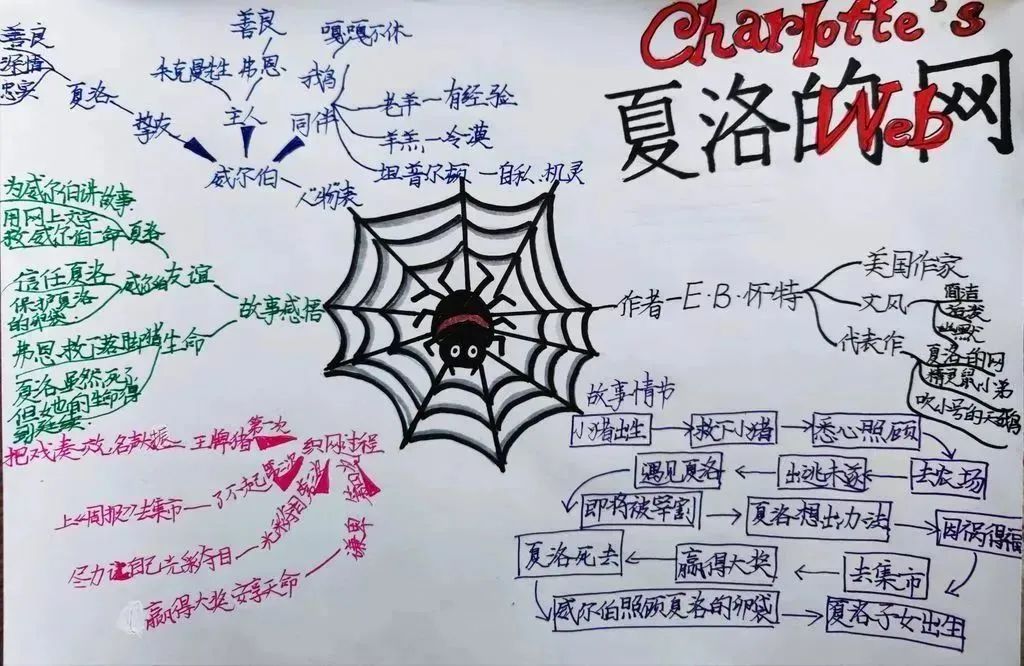 Charlotte's
Web
夏洛的网
善良
深情
忠实
夏洛
挚友
朱克曼先生
善良
弗恩
主人
嘎嘎不休
鹅
同伴
老羊—有经验
羊羔—冷漠
坦普尔顿—自私、机灵
威尔伯
人物表
为威尔伯讲故事
用网上文字
救威尔伯一命
夏洛
信任夏洛
保护夏洛
的卵袋
威尔伯
友谊
故事感悟
弗恩救下落脚猪
生命
夏洛虽然死了
但她的生命得
到延续
作者—E·B·怀特
美国作家
文风
简洁
幽默
代表作
夏洛的网
精灵鼠小弟
吹小号的天鹅
织网过程
第一次
王牌猪
了不起
上《周报》去集市
光彩照人
尽力让自己光彩夺目
谦卑
赢得大奖安享天命
故事情节
小猪出生
救下小猪
悉心照顾
去农场
出逃未遂
遇见夏洛
即将被宰割
夏洛想出办法
因祸得福
去集市
赢得大奖
夏洛死去
威尔伯照顾夏洛的卵袋
夏洛子女出生